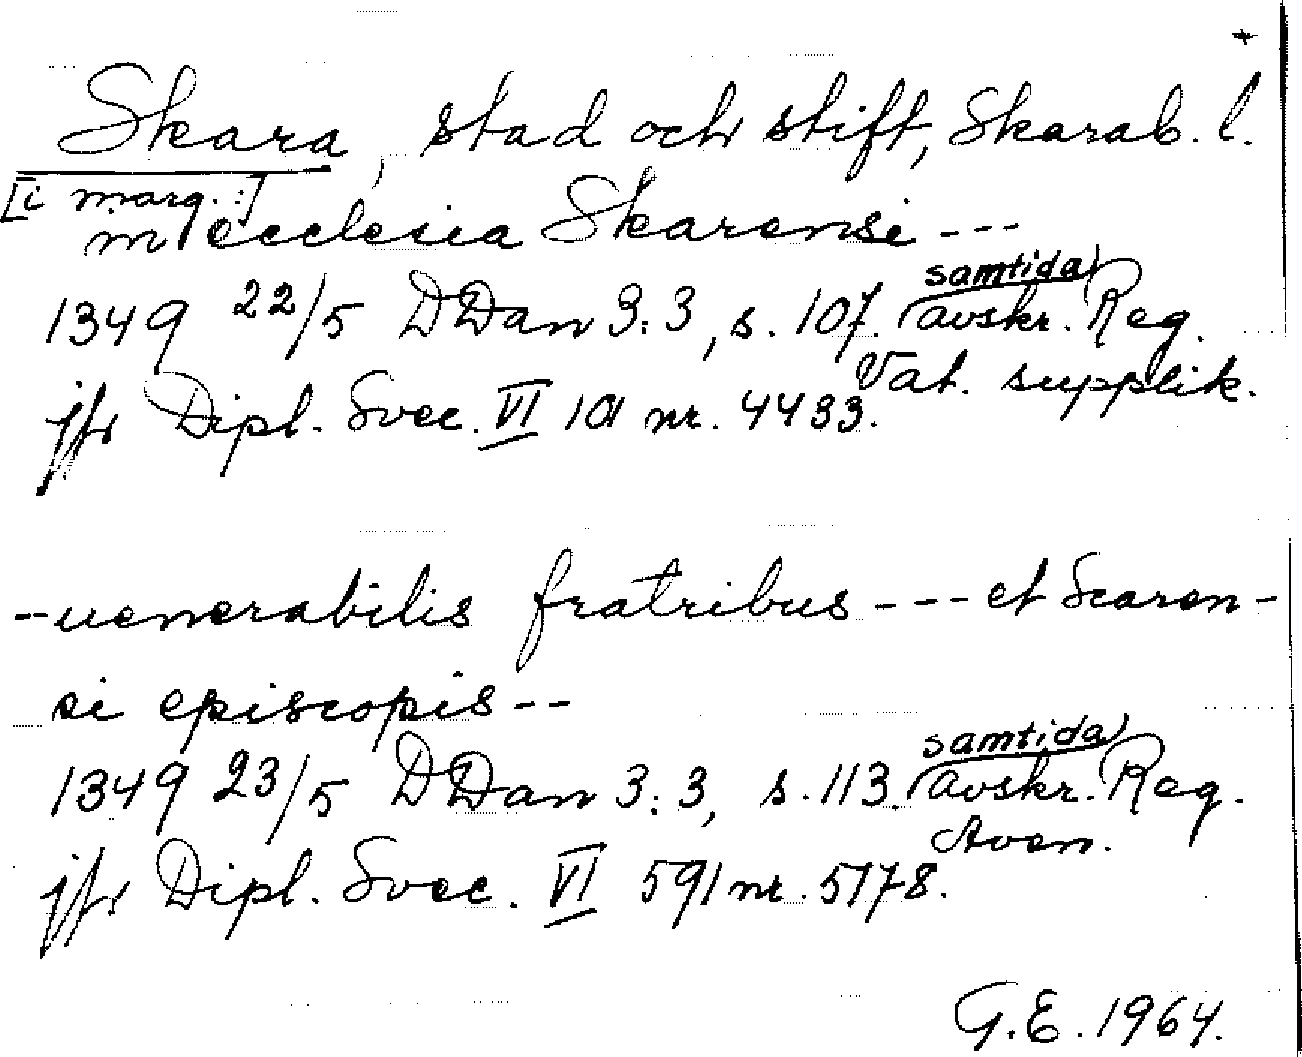 +
Skara, stad och stift, Skarab. l.
[i marg.:]
in ecclesia Skarensi ---
1349 22/5 DDan 3:3, s. 107. (samtida) avskr. Reg.
Vat. supplik.
jfr Dipl. Svec. VI 101 nr. 4433.
--uenerabilis fratribus --- et Scaren-
si episcopis --
1349 23/5 DDan 3:3, s. 113. (samtida) avskr. Reg.
Aven.
jfr Dipl. Svec. VI 591 nr. 5178.
G.E. 1964.